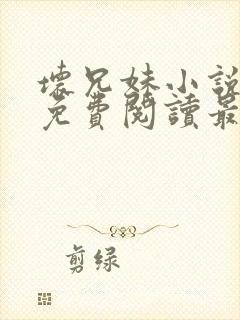 壞兄妹小說
免費閱讀最
剪绿